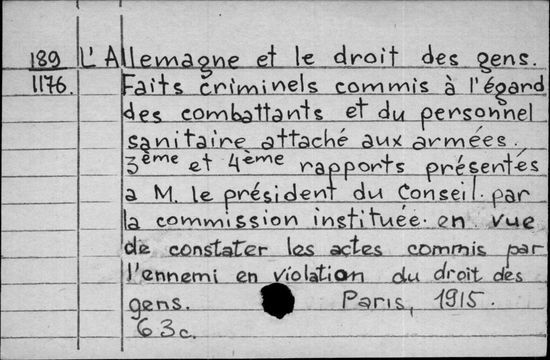 189 L'Allemagne et le droit des gens.
1176. Faits criminels commis à l'égard
des combattants et du personnel
sanitaire attaché aux armées.
3ème et 4ème rapports présentés
a M. le président du Conseil. par
la commission instituée. en vue
de constater les actes commis par
l'ennemi en violation du droit des
gens. Paris, 1915.
63c.